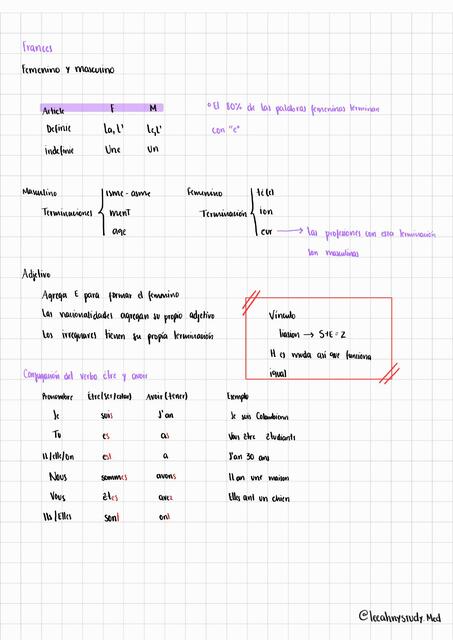 Frances
Femenino y masculino
Article F M
Definie la, l' le, l'
indefinie Une un
° El 80% de las palabras femeninas terminan
con "e"
Masculino isme - asme
Terminaciones ment
age
Femenino té (e)
Terminación ion
eur → las profesiones con esta terminación
son masculinas
Adjetivo
Agrega E para formar el femenino
Las nacionalidades agregan su propio adjetivo
Los irregulares tienen su propia terminación
Vinculo
liasion → S+E = Z
H es muda asi que funciona
igual
Conjugación del verbo être y avoir
Pronombre Être (ser/estar) Avoir (tener) Ejemplo
Je suis J'an Je suis Colombienn
Tu es as Vous être étudiants
Il/elle/on est a J'an 30 ans
Nous sommes avons Il an une maison
Vous êtes avez Elles ant un chien
Ils/Elles sont ont
@leeahnystudy.Med